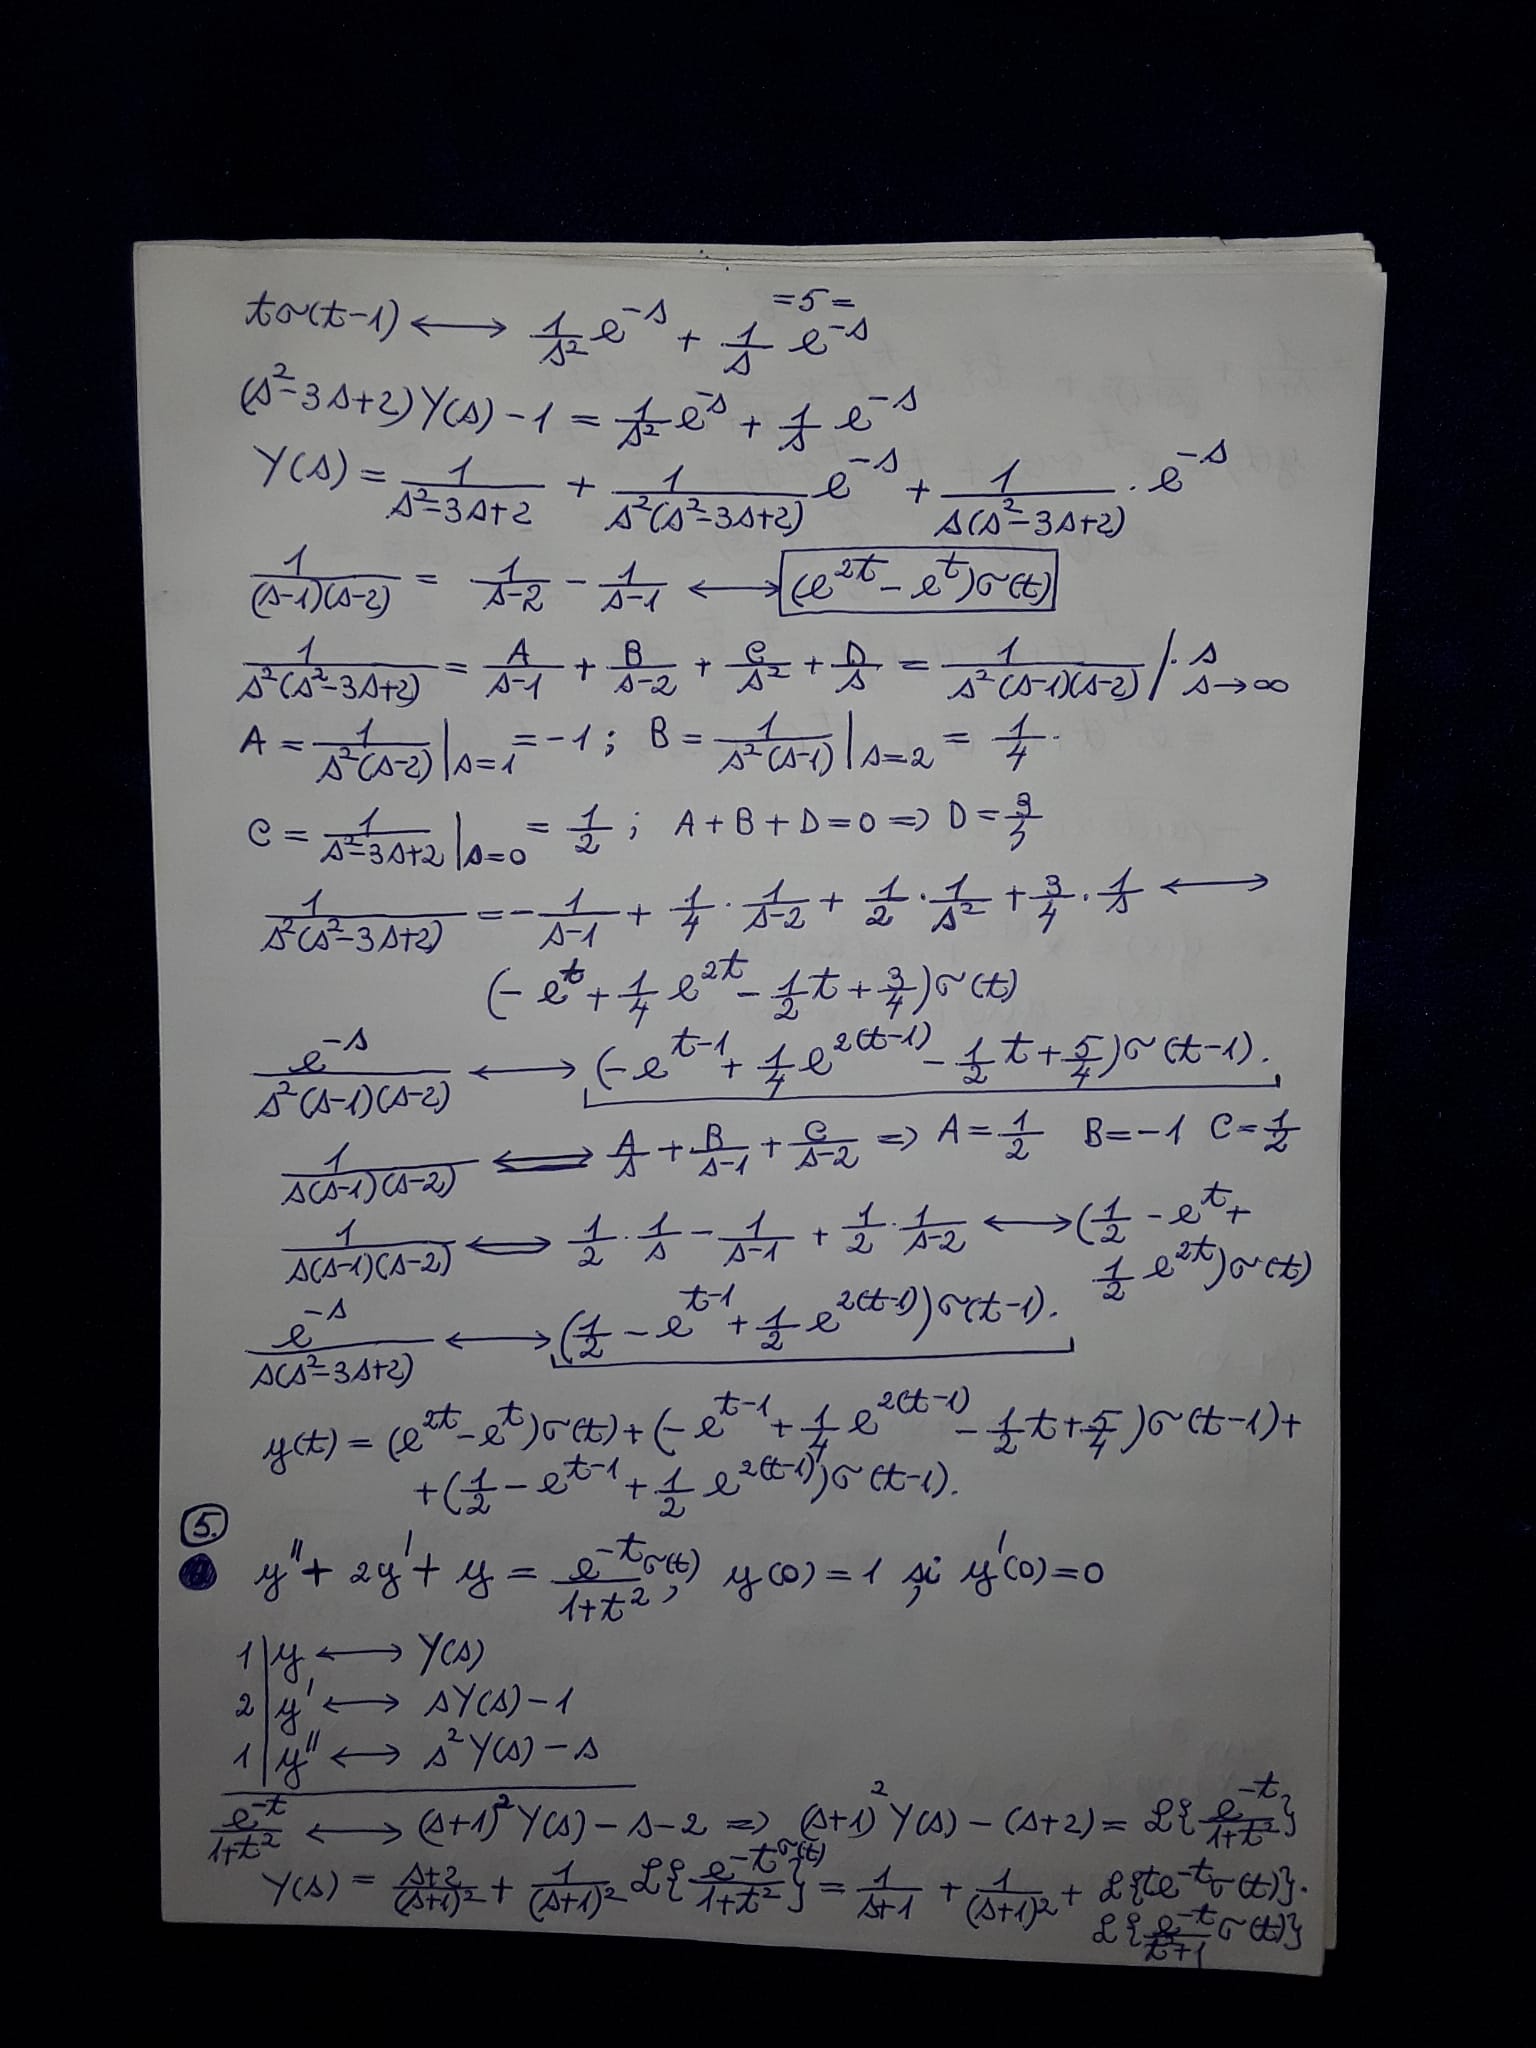 =5=
tσ(t-1) ⟷ 1/s² e^{-s} + 1/s e^{-s}
(s²-3s+2)Y(s)-1 = 1/s² e^{-s} + 1/s e^{-s}
Y(s) = 1/(s²-3s+2) + 1/(s²(s²-3s+2)) e^{-s} + 1/(s(s²-3s+2)) · e^{-s}
1/((s-1)(s-2)) = 1/(s-2) - 1/(s-1) ⟷ (e^{2t} - e^t)σ(t)
1/(s²(s²-3s+2)) = A/(s-1) + B/(s-2) + C/s² + D/s = 1/(s²(s-1)(s-2)) /· s s→∞
A = 1/(s²(s-2)) |s=1 = -1; B = 1/(s²(s-1)) |s=2 = 1/4.
C = 1/(s²-3s+2) |s=0 = 1/2; A+B+D=0 => D = 3/4
1/(s²(s²-3s+2)) = -1/(s-1) + 1/4 · 1/(s-2) + 1/2 · 1/s² + 3/4 · 1/s ⟷
(-e^t + 1/4 e^{2t} - 1/2 t + 3/4)σ(t)
e^{-s}/(s²(s-1)(s-2)) ⟷ (-e^{t-1} + 1/4 e^{2(t-1)} - 1/2 t + 5/4)σ(t-1).
1/(s(s-1)(s-2)) ⟺ A/s + B/(s-1) + C/(s-2) => A = 1/2 B=-1 C=1/2
1/(s(s-1)(s-2)) ⟺ 1/2 · 1/s - 1/(s-1) + 1/2 · 1/(s-2) ⟷ (1/2 - e^t +
1/2 e^{2t})σ(t)
e^{-s}/(s(s²-3s+2)) ⟷ (1/2 - e^{t-1} + 1/2 e^{2(t-1)})σ(t-1).
y(t) = (e^{2t} - e^t)σ(t) + (-e^{t-1} + 1/4 e^{2(t-1)} - 1/2 t + 5/4)σ(t-1) +
+ (1/2 - e^{t-1} + 1/2 e^{2(t-1)})σ(t-1).
5.
y'' + 2y' + y = e^{-t}σ(t)/(1+t²), y(0) = 1 și y'(0)=0
1 | y ⟷ Y(s)
2 | y' ⟷ sY(s)-1
1 | y'' ⟷ s²Y(s)-s
e^{-t}/(1+t²) ⟷ (s+1)²Y(s) - s-2 => (s+1)²Y(s) - (s+2) = L{e^{-t}/(1+t²)}
Y(s) = (s+2)/(s+1)² + 1/(s+1)² L{e^{-t}σ(t)/(1+t²)} = 1/(s+1) + 1/(s+1)² + L{te^{-t}σ(t)}·
L{e^{-t}/(t²+1) σ(t)}